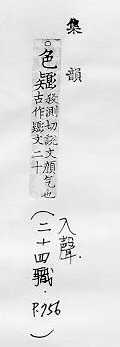 集韻
○色
殺測切說文顏气也
古作文二十
入聲.
(二十四職.P.756)